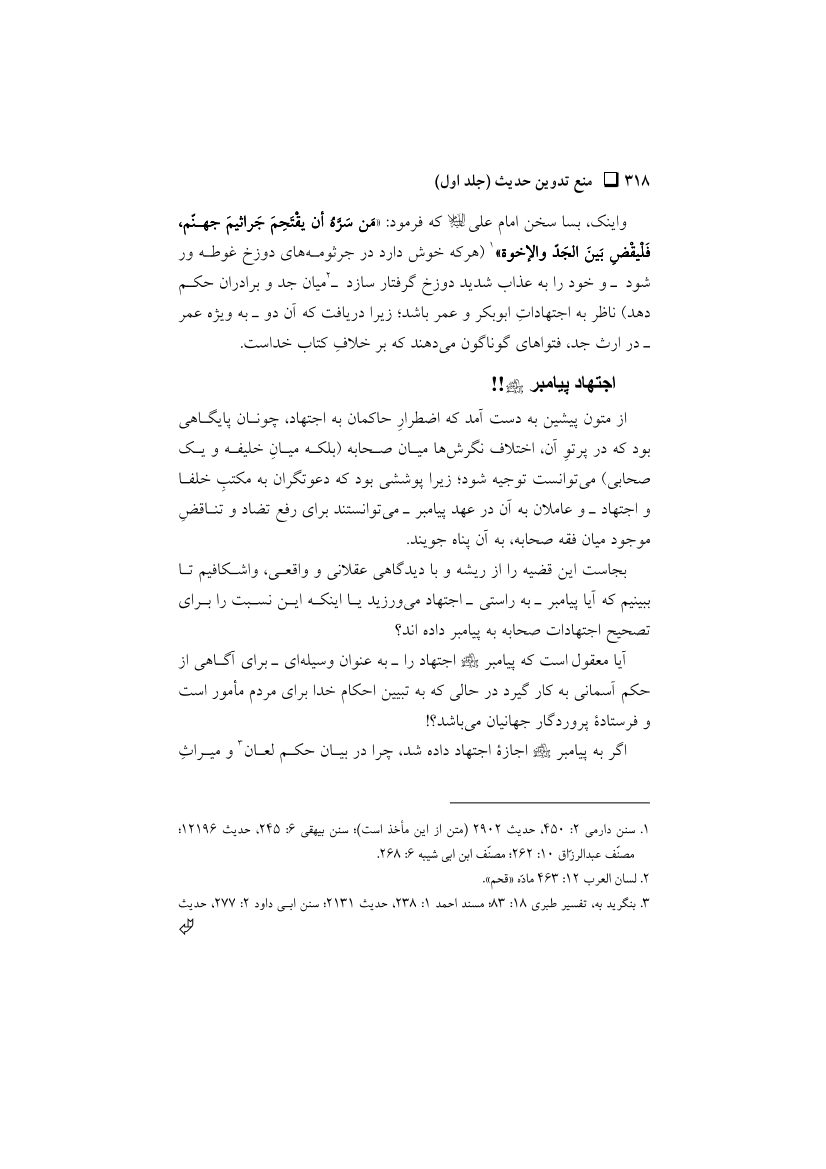 ۳۱۸ ❑ منع تدوین حدیث (جلد اول)
واینک، بسا سخن امام علی علیه‌السلام که فرمود: «مَن سَرَّهُ أن یقْتَحِمَ جَراثیمَ جهـنّم،
فَلْیقْضِ بَینَ الجَدّ والإخوة»۱ (هرکه خوش دارد در جرثومـه‌های دوزخ غوطـه ور
شود ـ و خود را به عذاب شدید دوزخ گرفتار سازد ـ۲میان جد و برادران حکـم
دهد) ناظر به اجتهاداتِ ابوبکر و عمر باشد؛ زیرا دریافت که آن دو ـ به ویژه عمر
ـ در ارث جد، فتواهای گوناگون می‌دهند که بر خلافِ کتاب خداست.
اجتهاد پیامبر ﷺ!!
از متون پیشین به دست آمد که اضطرارِ حاکمان به اجتهاد، چونـان پایگـاهی
بود که در پرتوِ آن، اختلاف نگرش‌ها میـان صـحابه (بلکـه میـانِ خلیفـه و یـک
صحابی) می‌توانست توجیه شود؛ زیرا پوششی بود که دعوتگران به مکتبِ خلفـا
و اجتهاد ـ و عاملان به آن در عهد پیامبر ـ می‌توانستند برای رفع تضاد و تنـاقضِ
موجود میان فقه صحابه، به آن پناه جویند.
بجاست این قضیه را از ریشه و با دیدگاهی عقلانی و واقعـی، واشـکافیم تـا
ببینیم که آیا پیامبر ـ به راستی ـ اجتهاد می‌ورزید یـا اینکـه ایـن نسـبت را بـرای
تصحیح اجتهادات صحابه به پیامبر داده اند؟
آیا معقول است که پیامبر ﷺ اجتهاد را ـ به عنوان وسیله‌ای ـ برای آگـاهی از
حکم آسمانی به کار گیرد در حالی که به تبیین احکام خدا برای مردم مأمور است
و فرستادۀ پروردگار جهانیان می‌باشد؟!
اگر به پیامبر ﷺ اجازۀ اجتهاد داده شد، چرا در بیـان حکـم لعـان۳ و میـراثِ
۱. سنن دارمی ۲: ۴۵۰، حدیث ۲۹۰۲ (متن از این مأخذ است)؛ سنن بیهقی ۶: ۲۴۵، حدیث ۱۲۱۹۶؛
مصنّف عبدالرزّاق ۱۰: ۲۶۲؛ مصنّف ابن ابی شیبه ۶: ۲۶۸.
۲. لسان العرب ۱۲: ۴۶۳ مادّه «قحم».
۳. بنگرید به، تفسیر طبری ۱۸: ۸۳؛ مسند احمد ۱: ۲۳۸، حدیث ۲۱۳۱؛ سنن ابـی داود ۲: ۲۷۷، حدیث